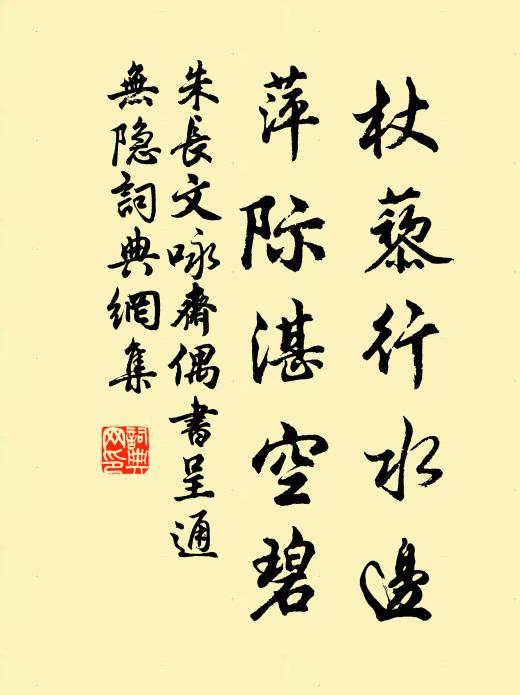 杖藜行水邊
萍际湛空碧
朱長文咏齋偶書呈通
無隐詞典網集
詞典网印